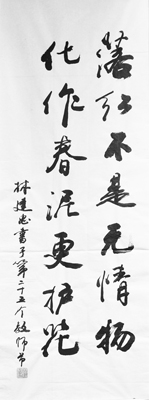 落红不是无情物
化作春泥更护花
林建忠书于第二十五个教师节